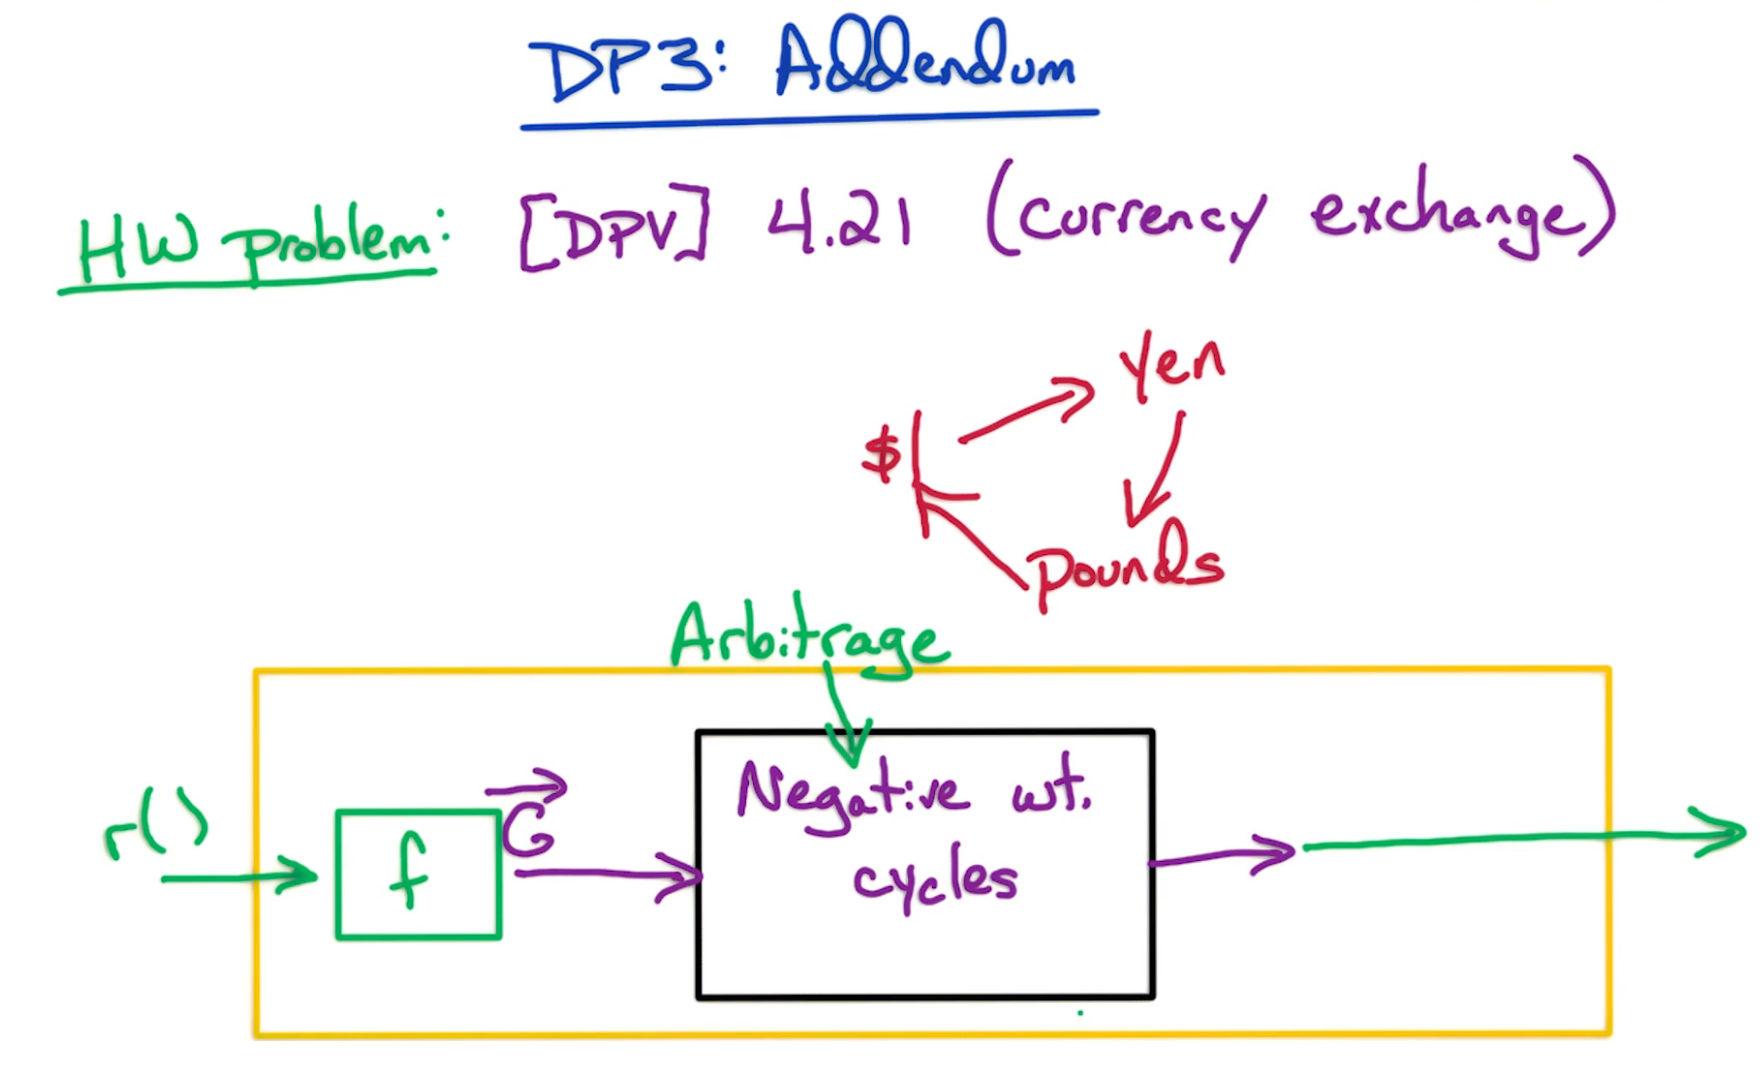 DP3: Addendum
HW problem: [DPV] 4.21 (currency exchange)
Yen
$
Pounds
Arbitrage
r()
f
G
Negative wt.
cycles